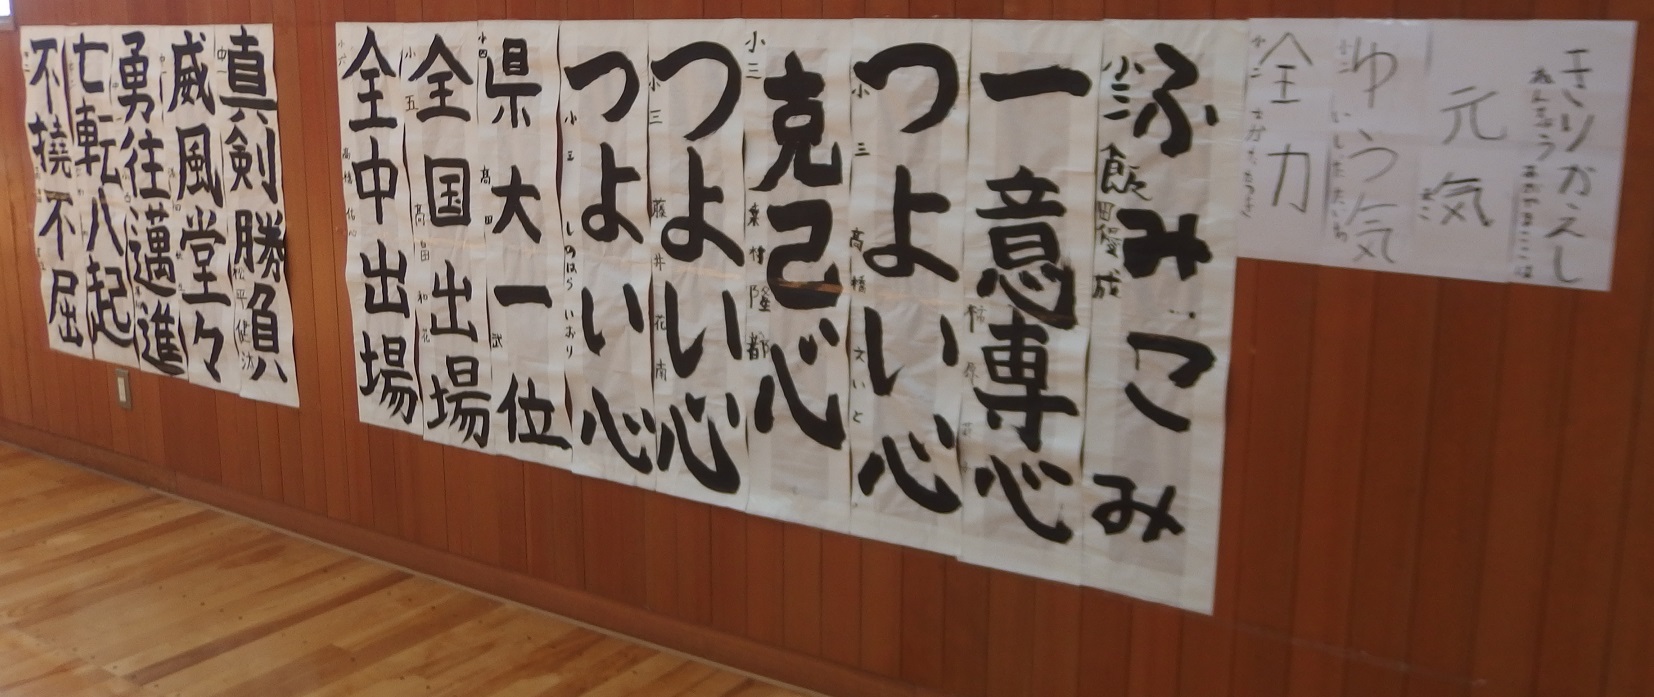 きりかえし
ねんちょう
元気
ゆう気
小二
全力
小二
ふみこみ
小三 飯田優成
一意専心
つよい心
小三 高橋 文いと
克己心
小三
つよい心
小三 藤井 花南
つよい心
小三 しのはら いおり
県大一位
小四 高田 武
全国出場
小五 高畠 和花
全中出場
小六 高橋 佑心
真剣勝負
中一 松平 健汰
威風堂々
勇往邁進
七転八起
不撓不屈